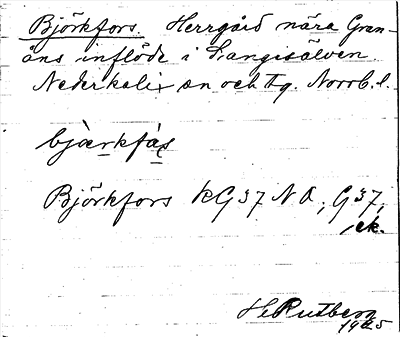 Björkfors. Herrgård nära Gran-
åns inflöde i Sangisälven.
Nederkalix sn och tg. Norrb. l.
bjærkfås
Björkfors KG 37 N A, G 37,
ek.
H. Rutberg
1925